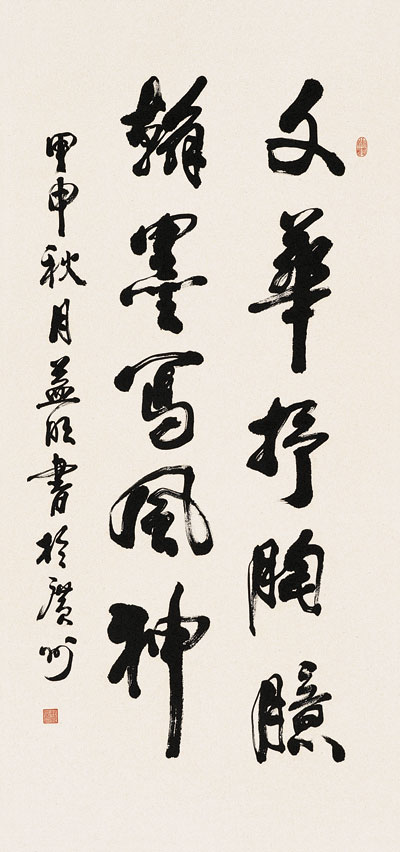 文華抒胸臆
翰墨寫風神
甲申秋月益明書於廣州